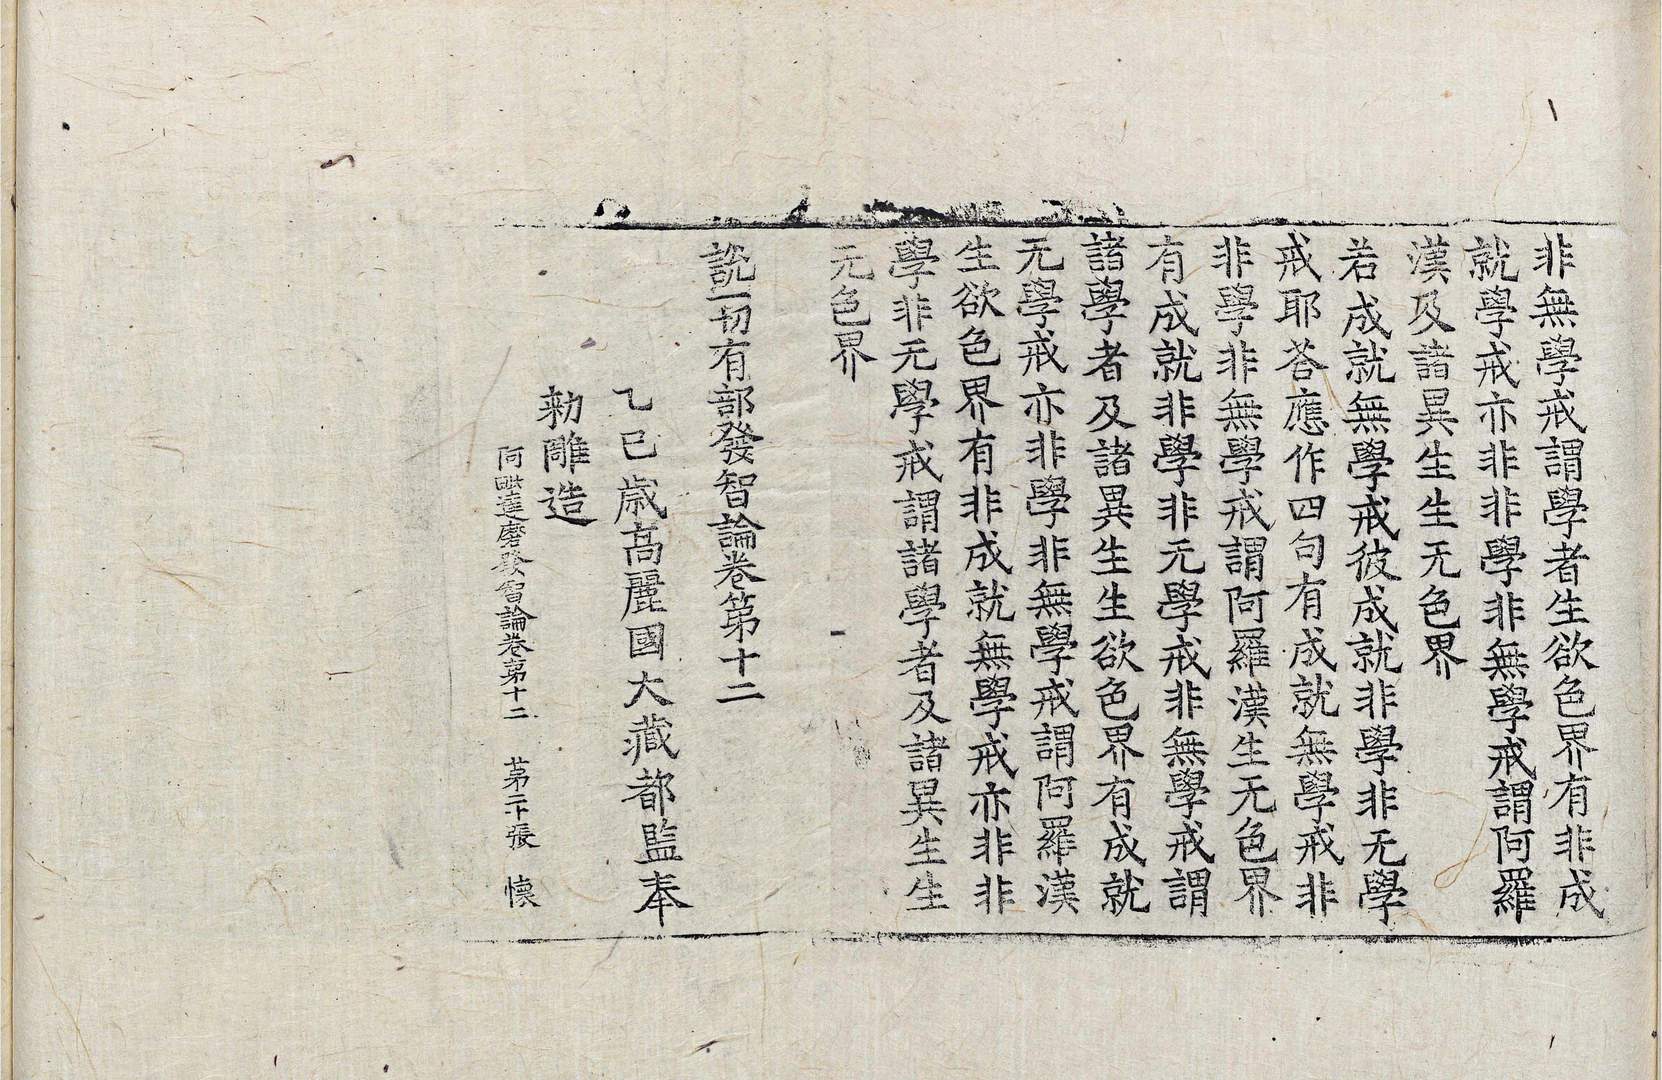 非無學戒謂學者生欲色界有非成
就學戒亦非非學非無學戒謂阿羅
漢及諸異生生无色界
若成就無學戒彼成就非學非无學
戒耶荅應作四句有成就無學戒非
非學非無學戒謂阿羅漢生无色界
有成就非學非无學戒非無學戒謂
諸學者及諸異生生欲色界有成就
无學戒亦非學非無學戒謂阿羅漢
生欲色界有非成就無學戒亦非非
學非无學戒謂諸學者及諸異生生
无色界
說一切有部發智論卷第十二
乙巳歳高麗國大藏都監奉
勅雕造
阿毗達磨發智論卷第十二 第二十張 懷